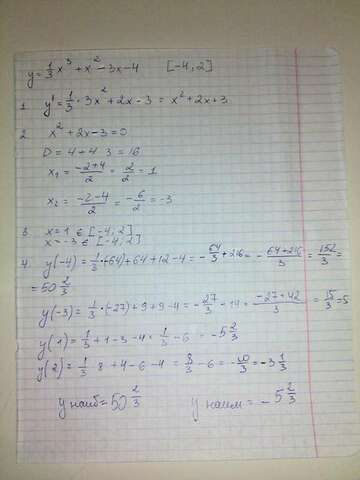 y = 1/3 x³ + x² - 3x - 4 [-4, 2]
1. y' = 1/3 · 3x² + 2x - 3 = x² + 2x + 3
2. x² + 2x - 3 = 0
D = 4 + 4 · 3 = 16
x₁ = (-2+4)/2 = 2/2 = 1
x₂ = (-2-4)/2 = -6/2 = -3
3. x = 1 ∈ [-4, 2]
x = -3 ∈ [-4, 2]
4. y(-4) = 1/3 · (-64) + 64 + 12 - 4 = -64/3 + 216 = (-64+216)/3 = 152/3 =
= 50 2/3
y(-3) = 1/3 · (-27) + 9 + 9 - 4 = -27/3 + 14 = (-27+42)/3 = 15/3 = 5
y(1) = 1/3 + 1 - 3 - 4 = 1/3 - 6 = -5 2/3
y(2) = 1/3 · 8 + 4 - 6 - 4 = 8/3 - 6 = -10/3 = -3 1/3
y наиб = 50 2/3 y наим = -5 2/3